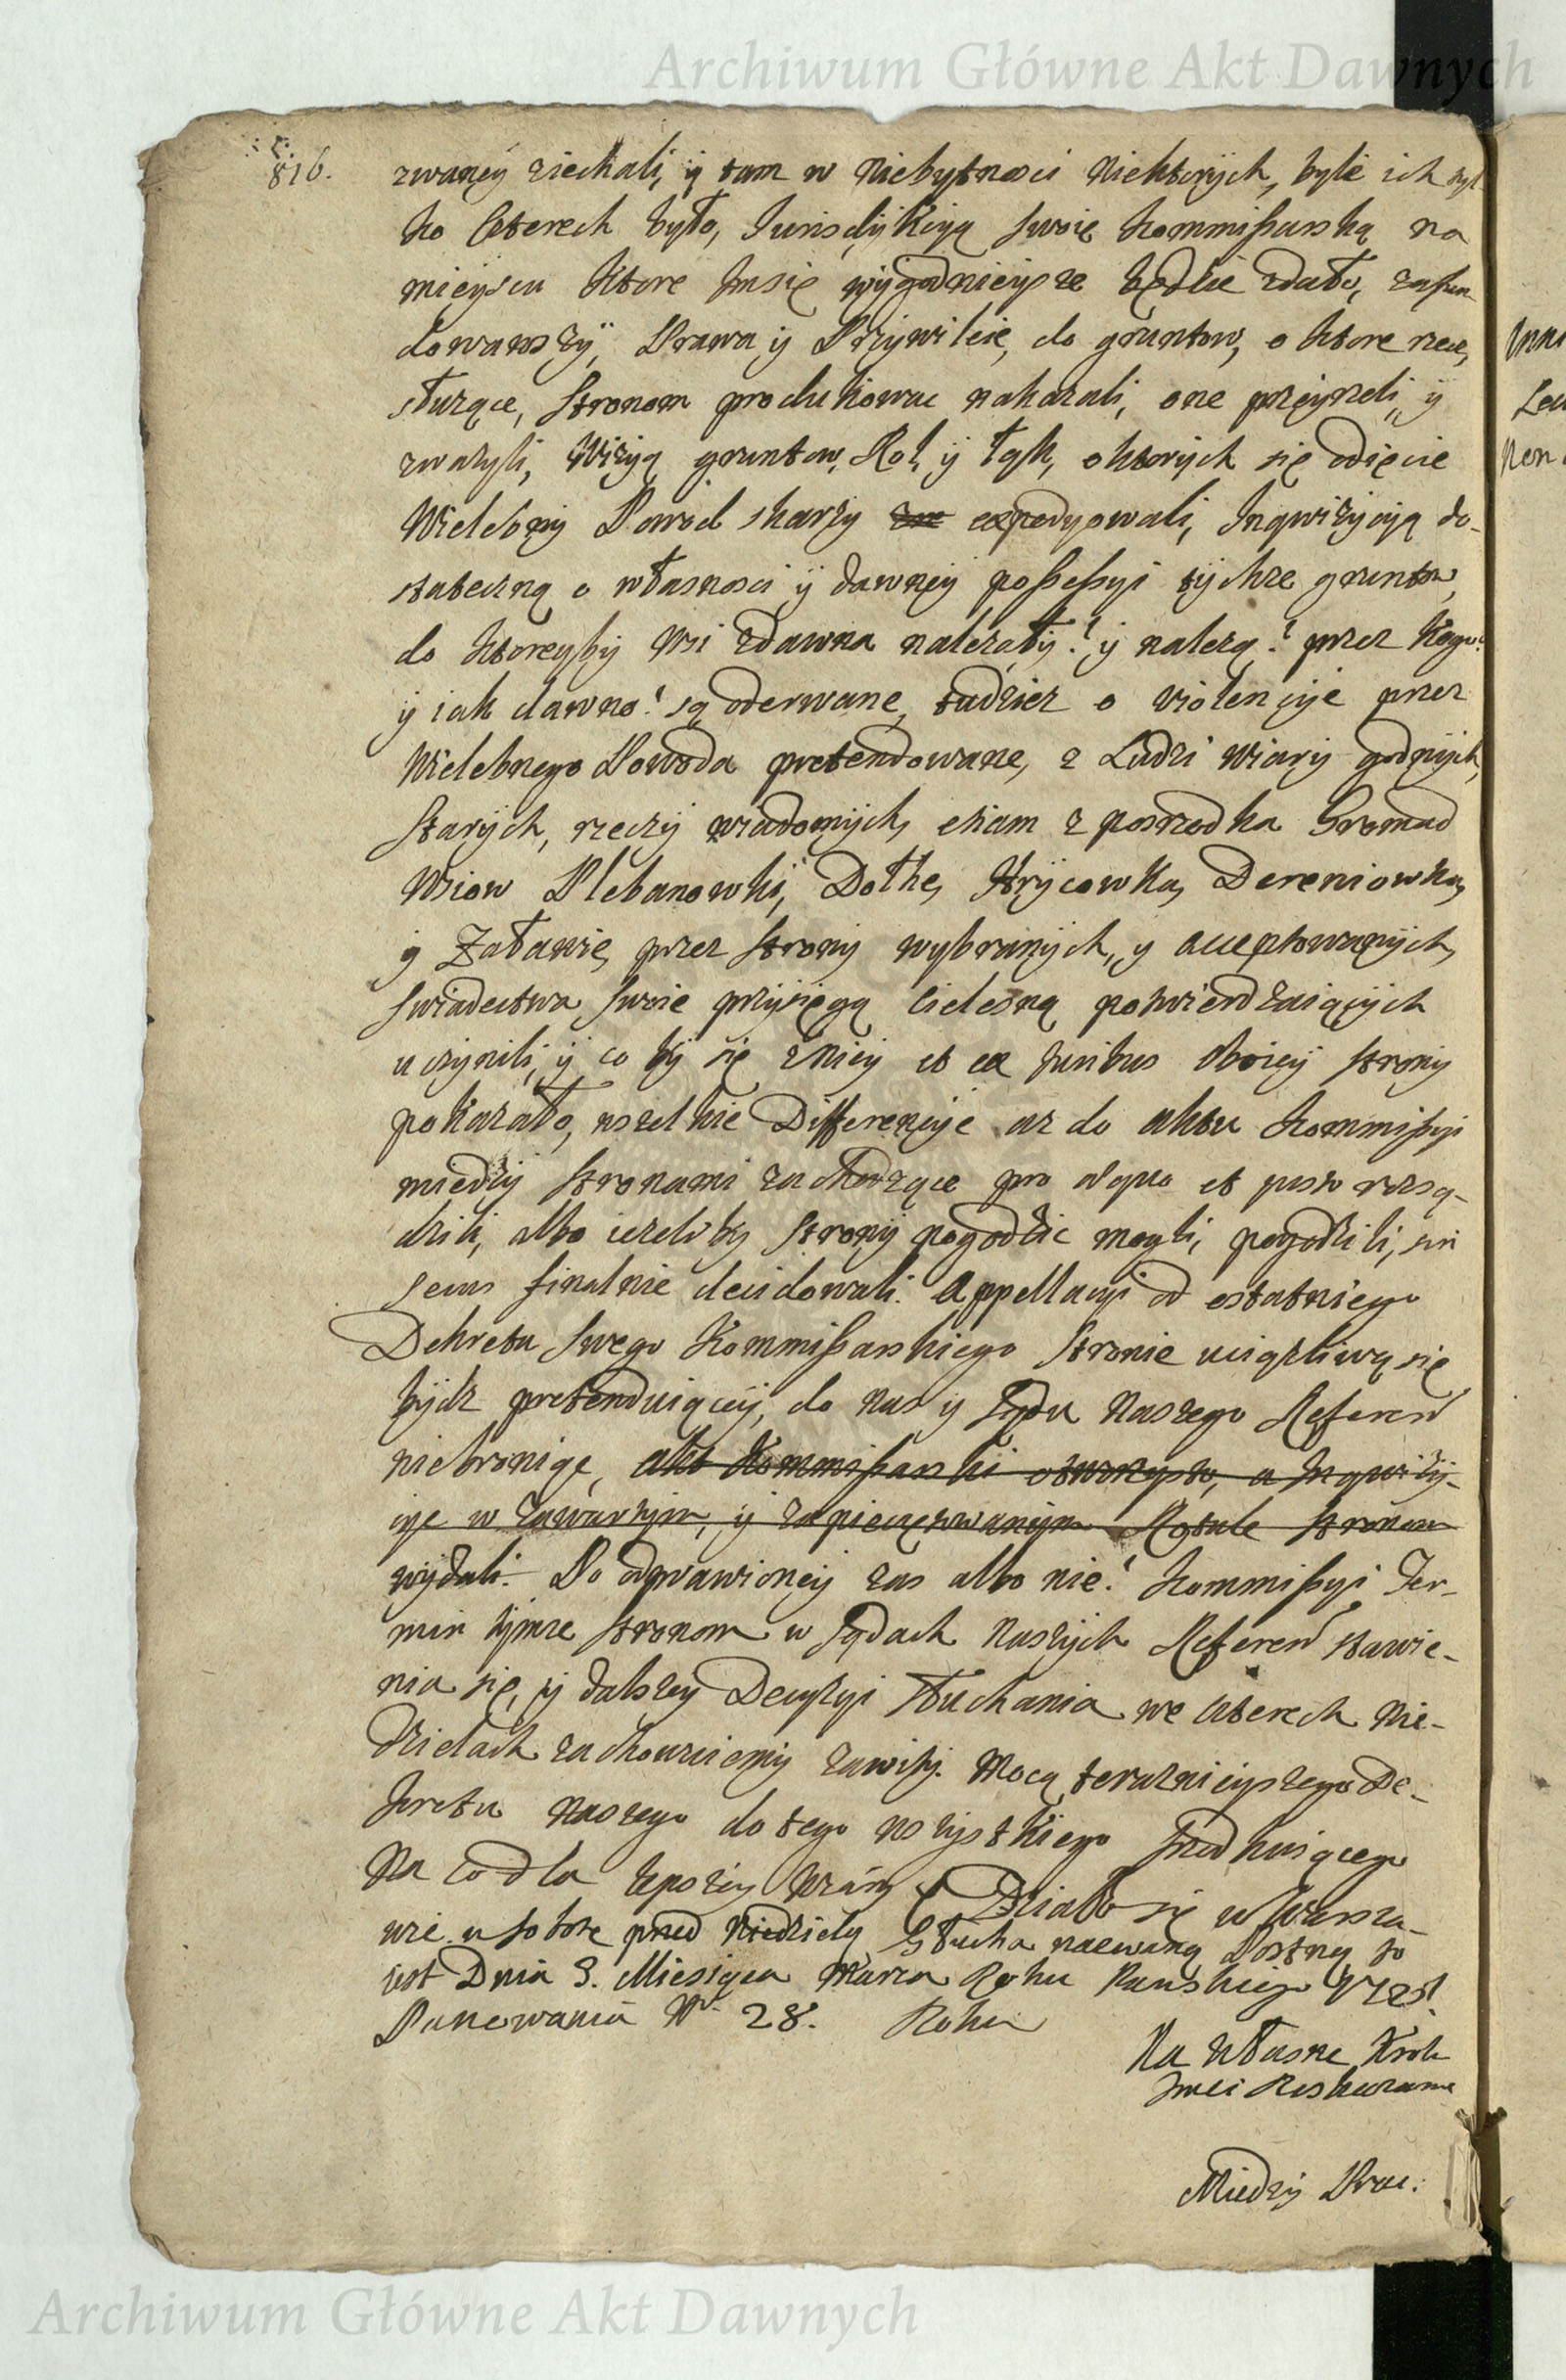 Archiwum Główne Akt Dawnych
816.
zwaney ziechali, y tam w niebytnosci niektorych, byle ich tyl
ko czterech było, Jurisdykcyą swoię Kommißarską na
mieyscu ktore Jmsię wygodnieysze będzie zdało, zafun
dowawszy, Prawa y Przywileie, do gruntow, o ktore rzecz,
służące, stronom produkowac nakazali, one przeyrzeli, y
zwazyli, Wizyą gruntow, Rol, y łąk, o ktorych się odięcie
Wielebny Powod skarzy expedyowali, Inqwizycyą do-
stateczną o własnosci y dawney poßeßyi tychze gruntow,
do ktoreyby wsi zdawna nalezały? y nalezą? przez kogo?
y iak dawno? są oderwane, tudziez o violencye przez
Wielebnego Powoda pretendowane, z Ludzi wiary godnych,
starych, rzeczy wiadomych, etiam z posrzodka Gromad
Wsiow Plebanowki, Dołhe, Hrycowka, Dereniowka,
y Załawie, przez strony wybranych, y acceptowanych,
swiadectwa swoie przysięgą cielesną potwierdzaiących
uczynili, y co by się z niey et ex Juribus oboiey strony
pokazało, wszelkie Differencye az do aktu Kommißyi
między stronami zachodzące pro aequo et justo rozsą-
dzili, albo iezeliby strony pogodzic mogli, pogodzili, sin
secus finalnie decidowali. Appellacyi od ostatniego
Dekretu swego Kommißarskiego stronie uciązliwą się
bydz pretenduiącey, do nas y sądu Naszego Referen
niebroniąc, akt Kommißarski otworzysto, a Inqwizy-
cye w zawartym, y zapieczętowanym Rotule stronom
wydali. Po odprawioney zas albo nie? Kommißyi Ter-
min tymze stronom w sądach Naszych Referen stawie-
nia się, y dalszey Decyzyi słuchania we czterech Nie-
dzielach zachowuiemy zawity. Mocą teraznieyszego De-
kretu Naszego do tego wszystkiego srzodkuiącego
Na co dla lepszey wiary Działo się w Warsza-
wie w sobotę przed Niedzielą Głucha nazwaną Postną to
iest Dnia 3. Miesiąca Marca Roku Pańskiego
Panowania N. 28. Roku
Na własne Krola
Jmci Roskazanie
Między Prac:
Archiwum Główne Akt Dawnych